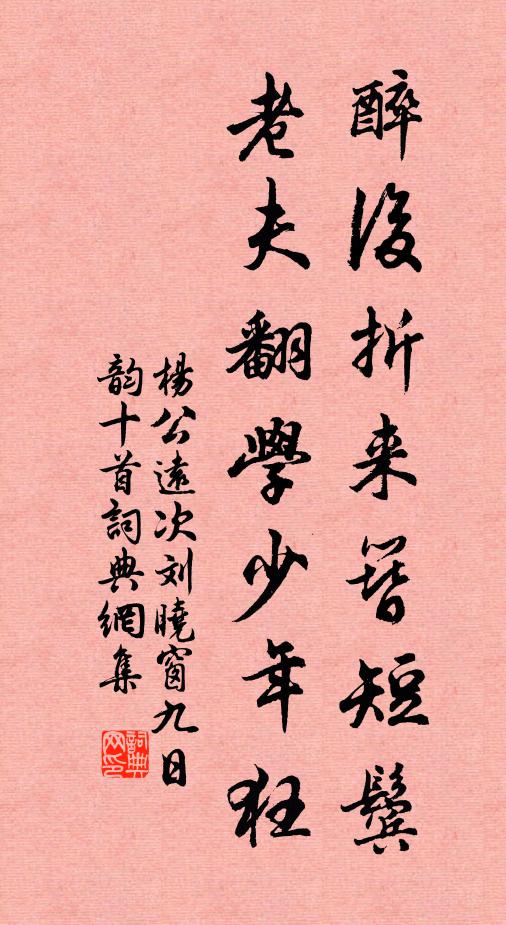 醉後折来簪短鬢
老夫翻學少年狂
楊公遠次刘曉窗九日
韵十首詞典網集
詞典网印